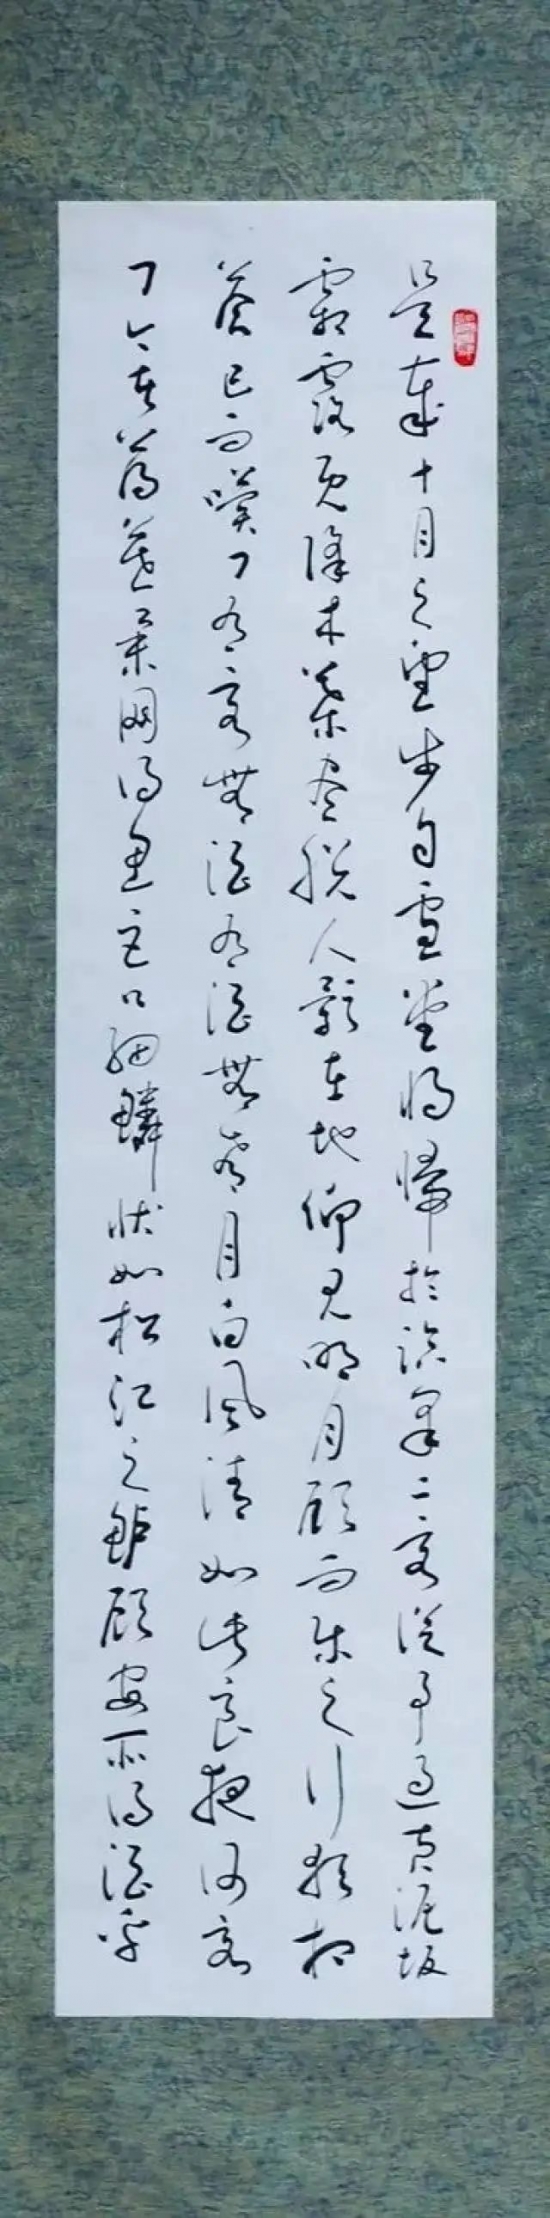 是歲十月之望步自雪堂將歸於臨皋二客從予過黃泥坂
霜露既降木葉盡脫人影在地仰見明月顧而樂之行歌相
答已而嘆曰有客無酒有酒無肴月白風清如此良夜何客
曰今者薄暮舉網得魚巨口細鱗狀如松江之鱸顧安所得酒乎